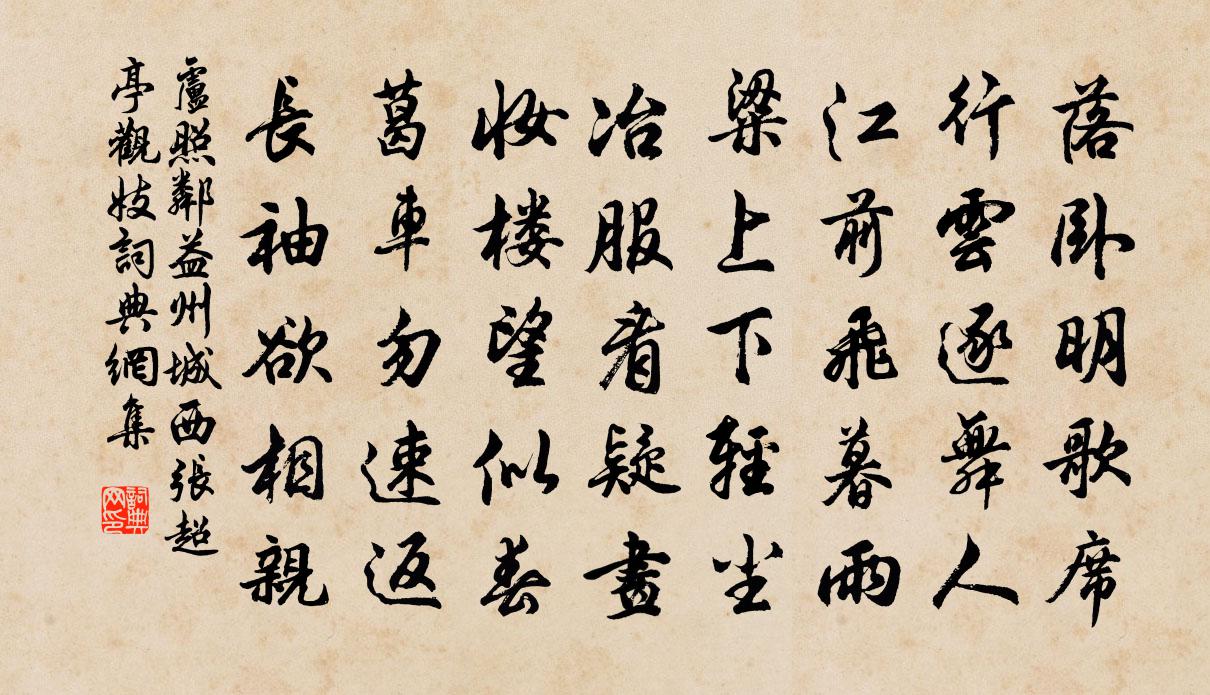 落卧明歌席
行雲逐舞人
江前飛暮雨
梁上下輕尘
冶服看疑畫
妝楼望似春
葛車勿速返
長袖欲相親
盧照鄰益州城西張超
亭觀妓詞典網集
詞典
网印